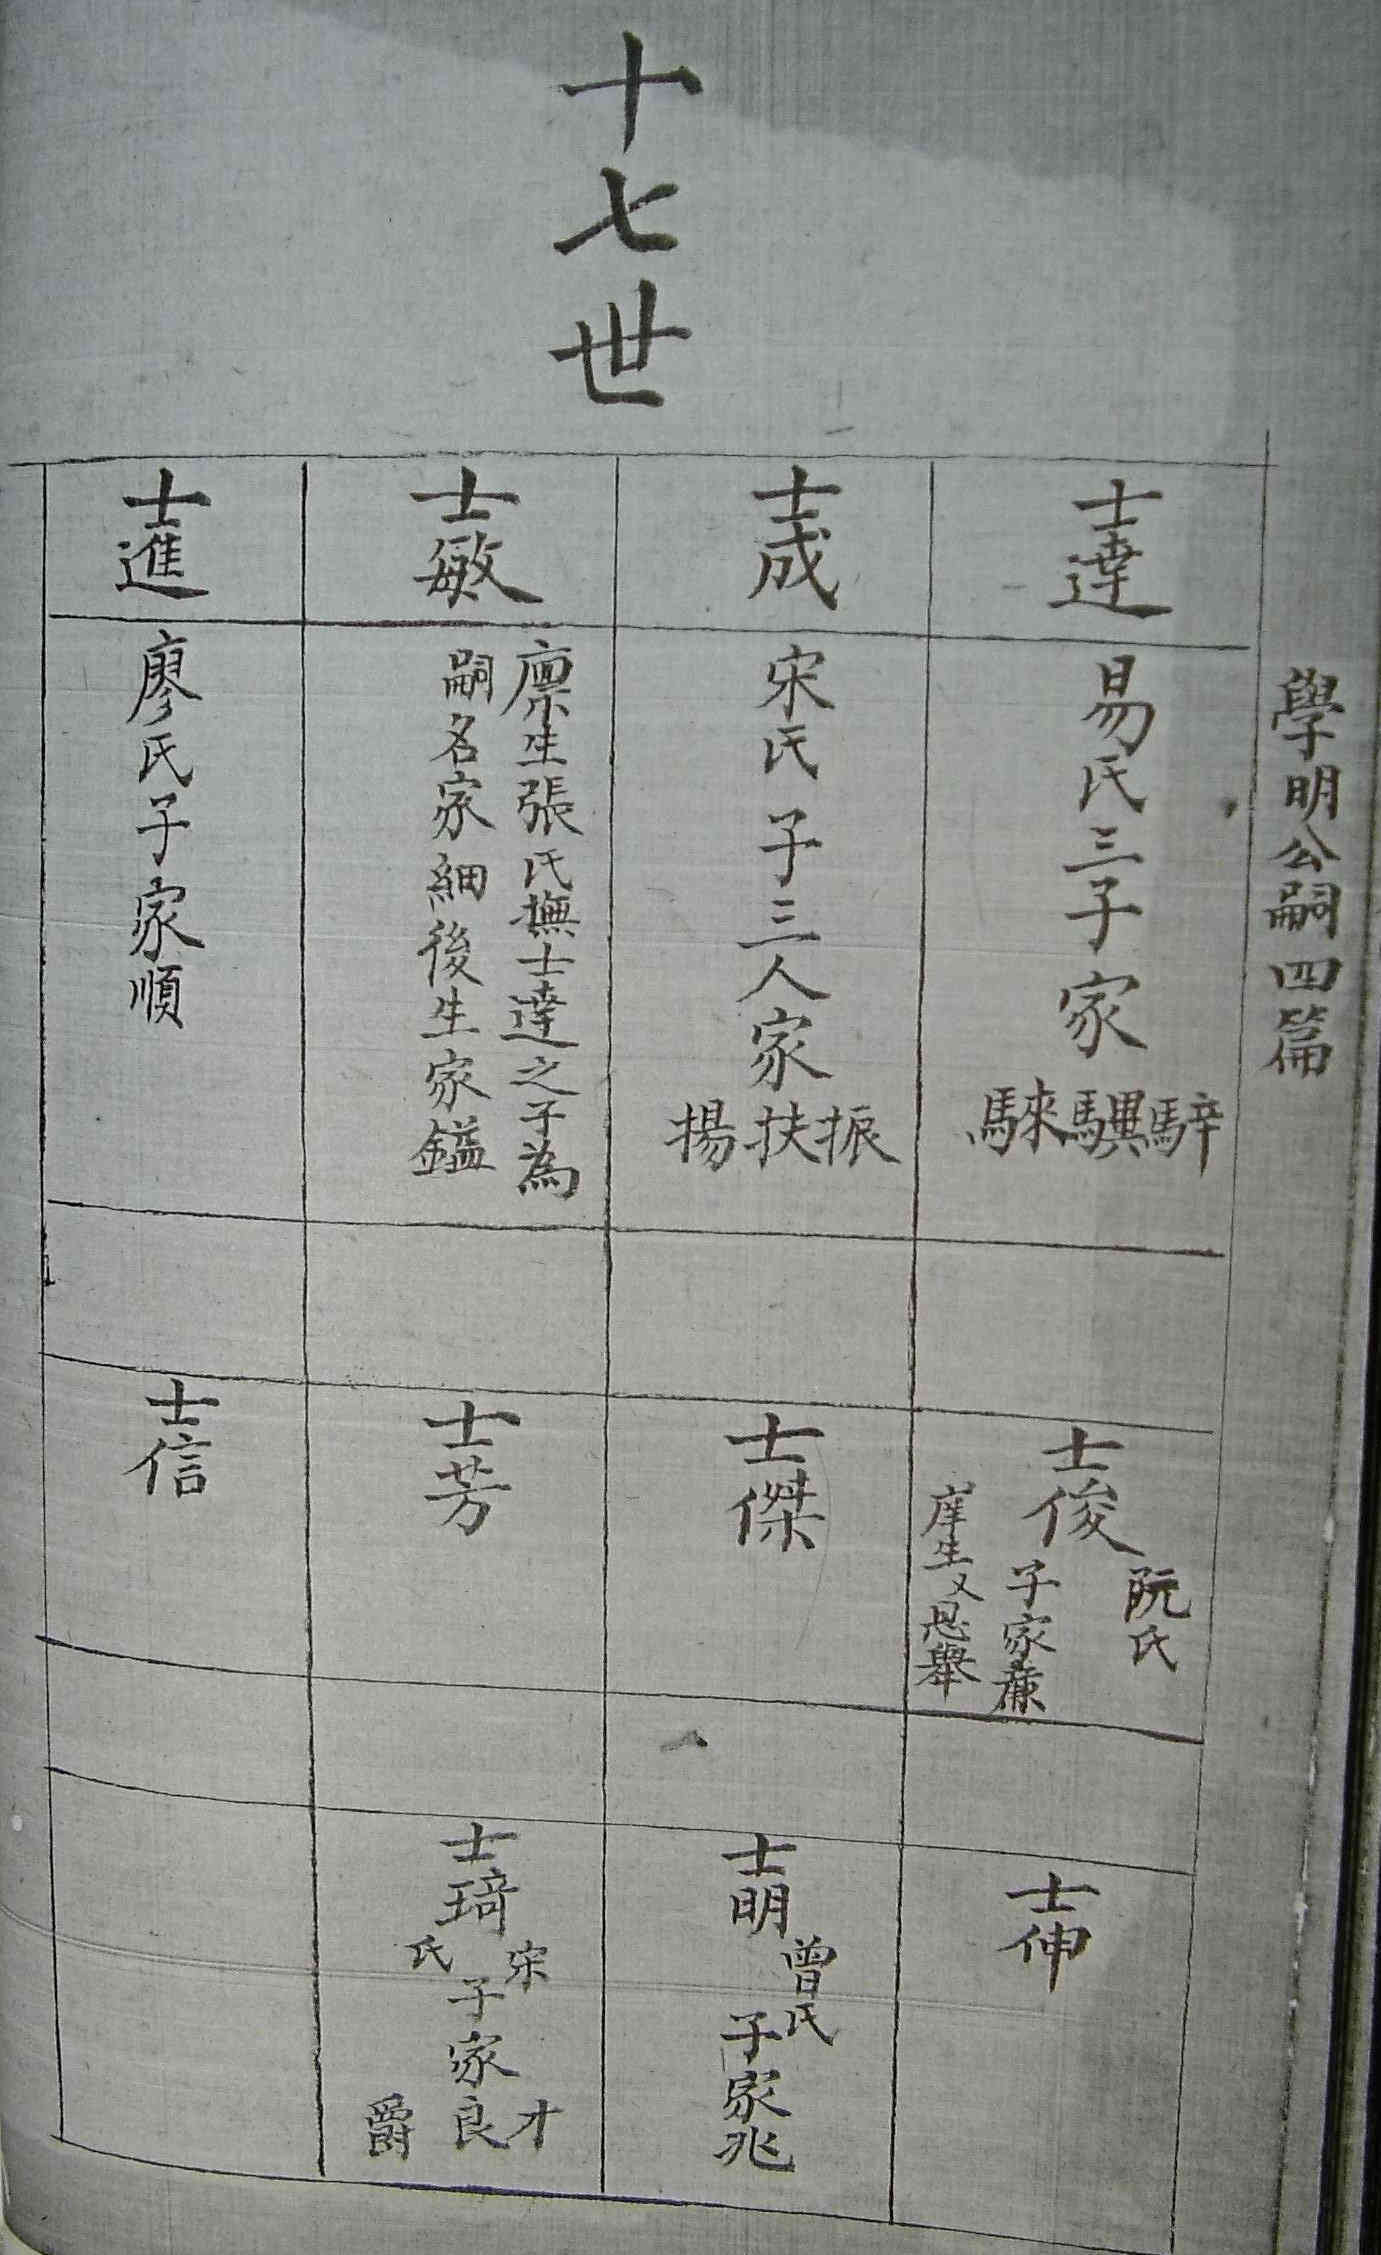 十七世
學明公嗣四篇
士達
易氏三子家
騂騏騋
士成
宋氏子三人家
振扶揚
士敏
廩生張氏撫士達之子為
嗣名家細後生家鎰
士進
廖氏子家順
士俊
阮氏
子家薕
庠生又恩舉
士傑
士芳
士信
士伸
士明
曾氏
子家兆
士琦
宋氏
子家
才良爵